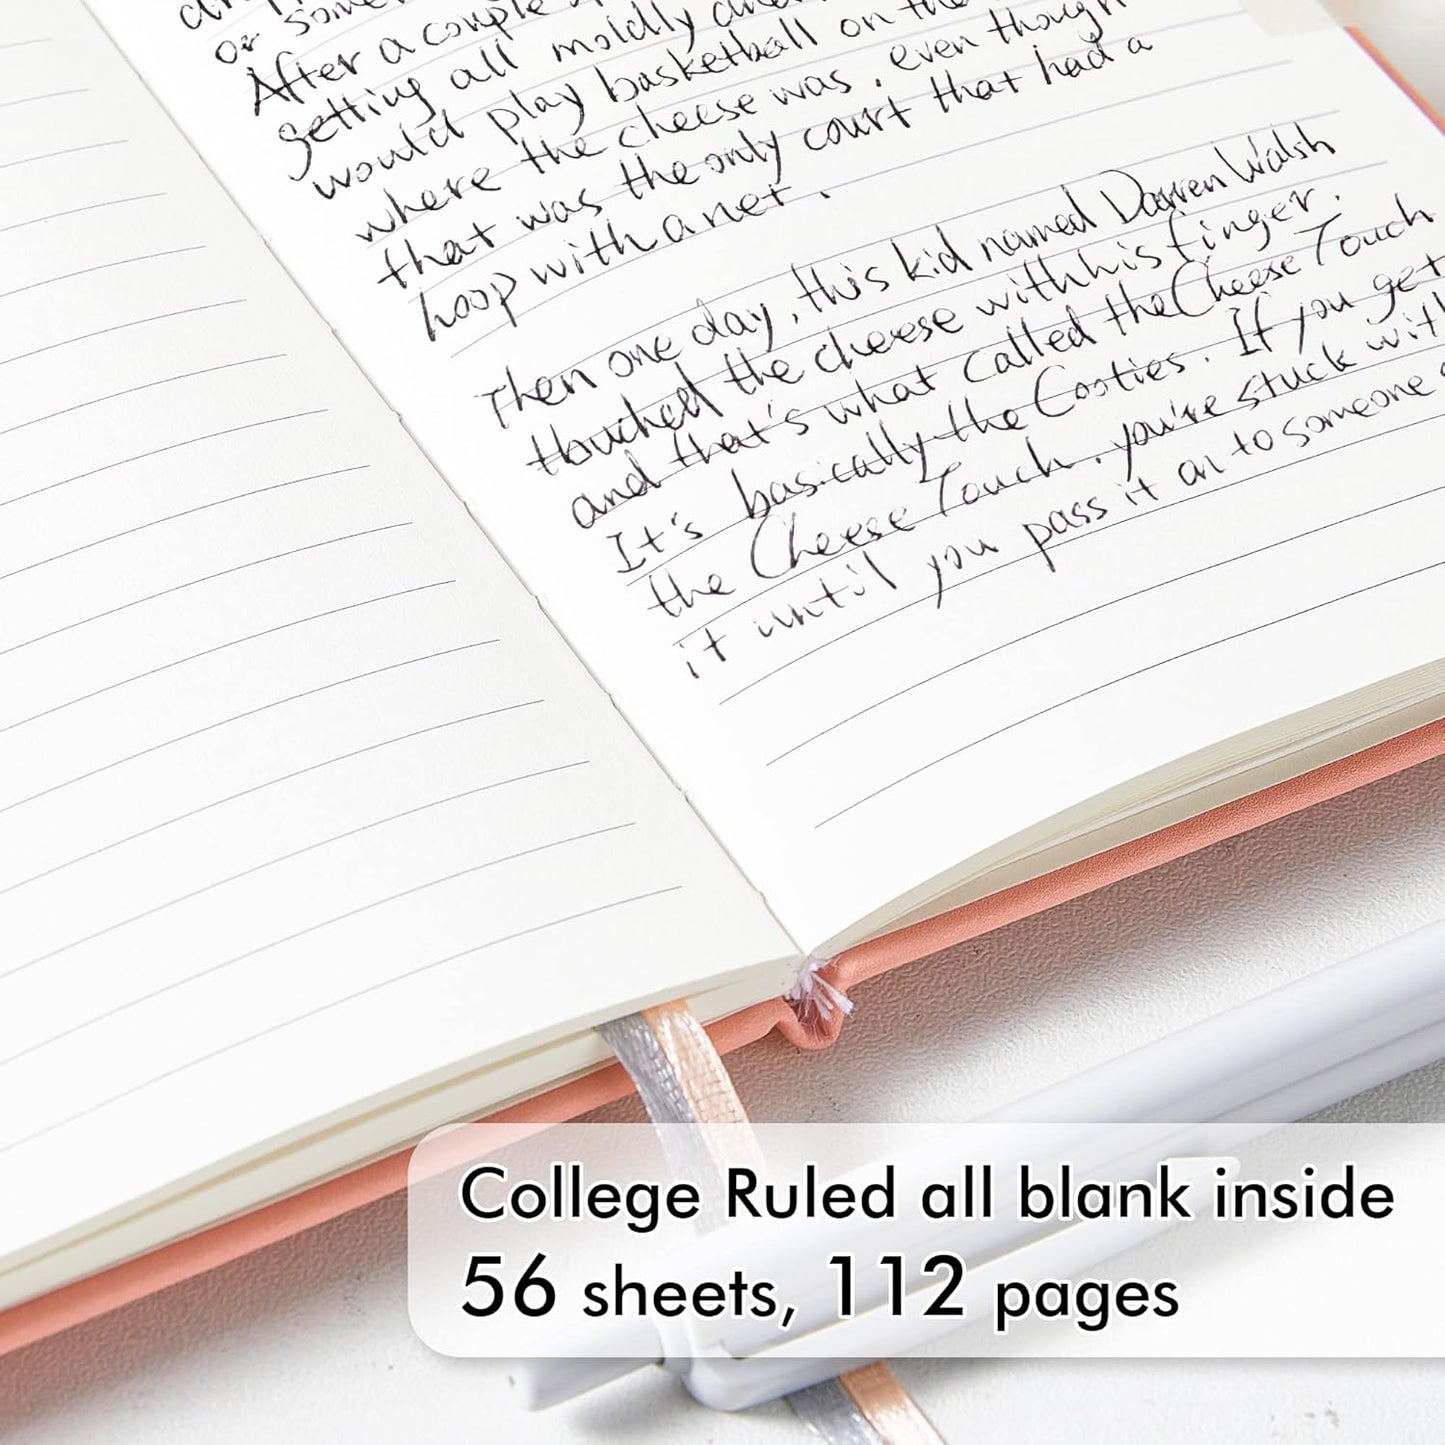 or some
After a couple
getting all moldly and
would play basketball on the
where the cheese was. even though
that was the only court that had a
hoop with a net.
Then one day, this kid named Darren Walsh
thouched the cheese with his finger.
and that's what called the Cheese Touch
It's basically the Cooties. If you get
the Cheese Touch. you're stuck with
it until you pass it on to someone
College Ruled all blank inside
56 sheets, 112 pages